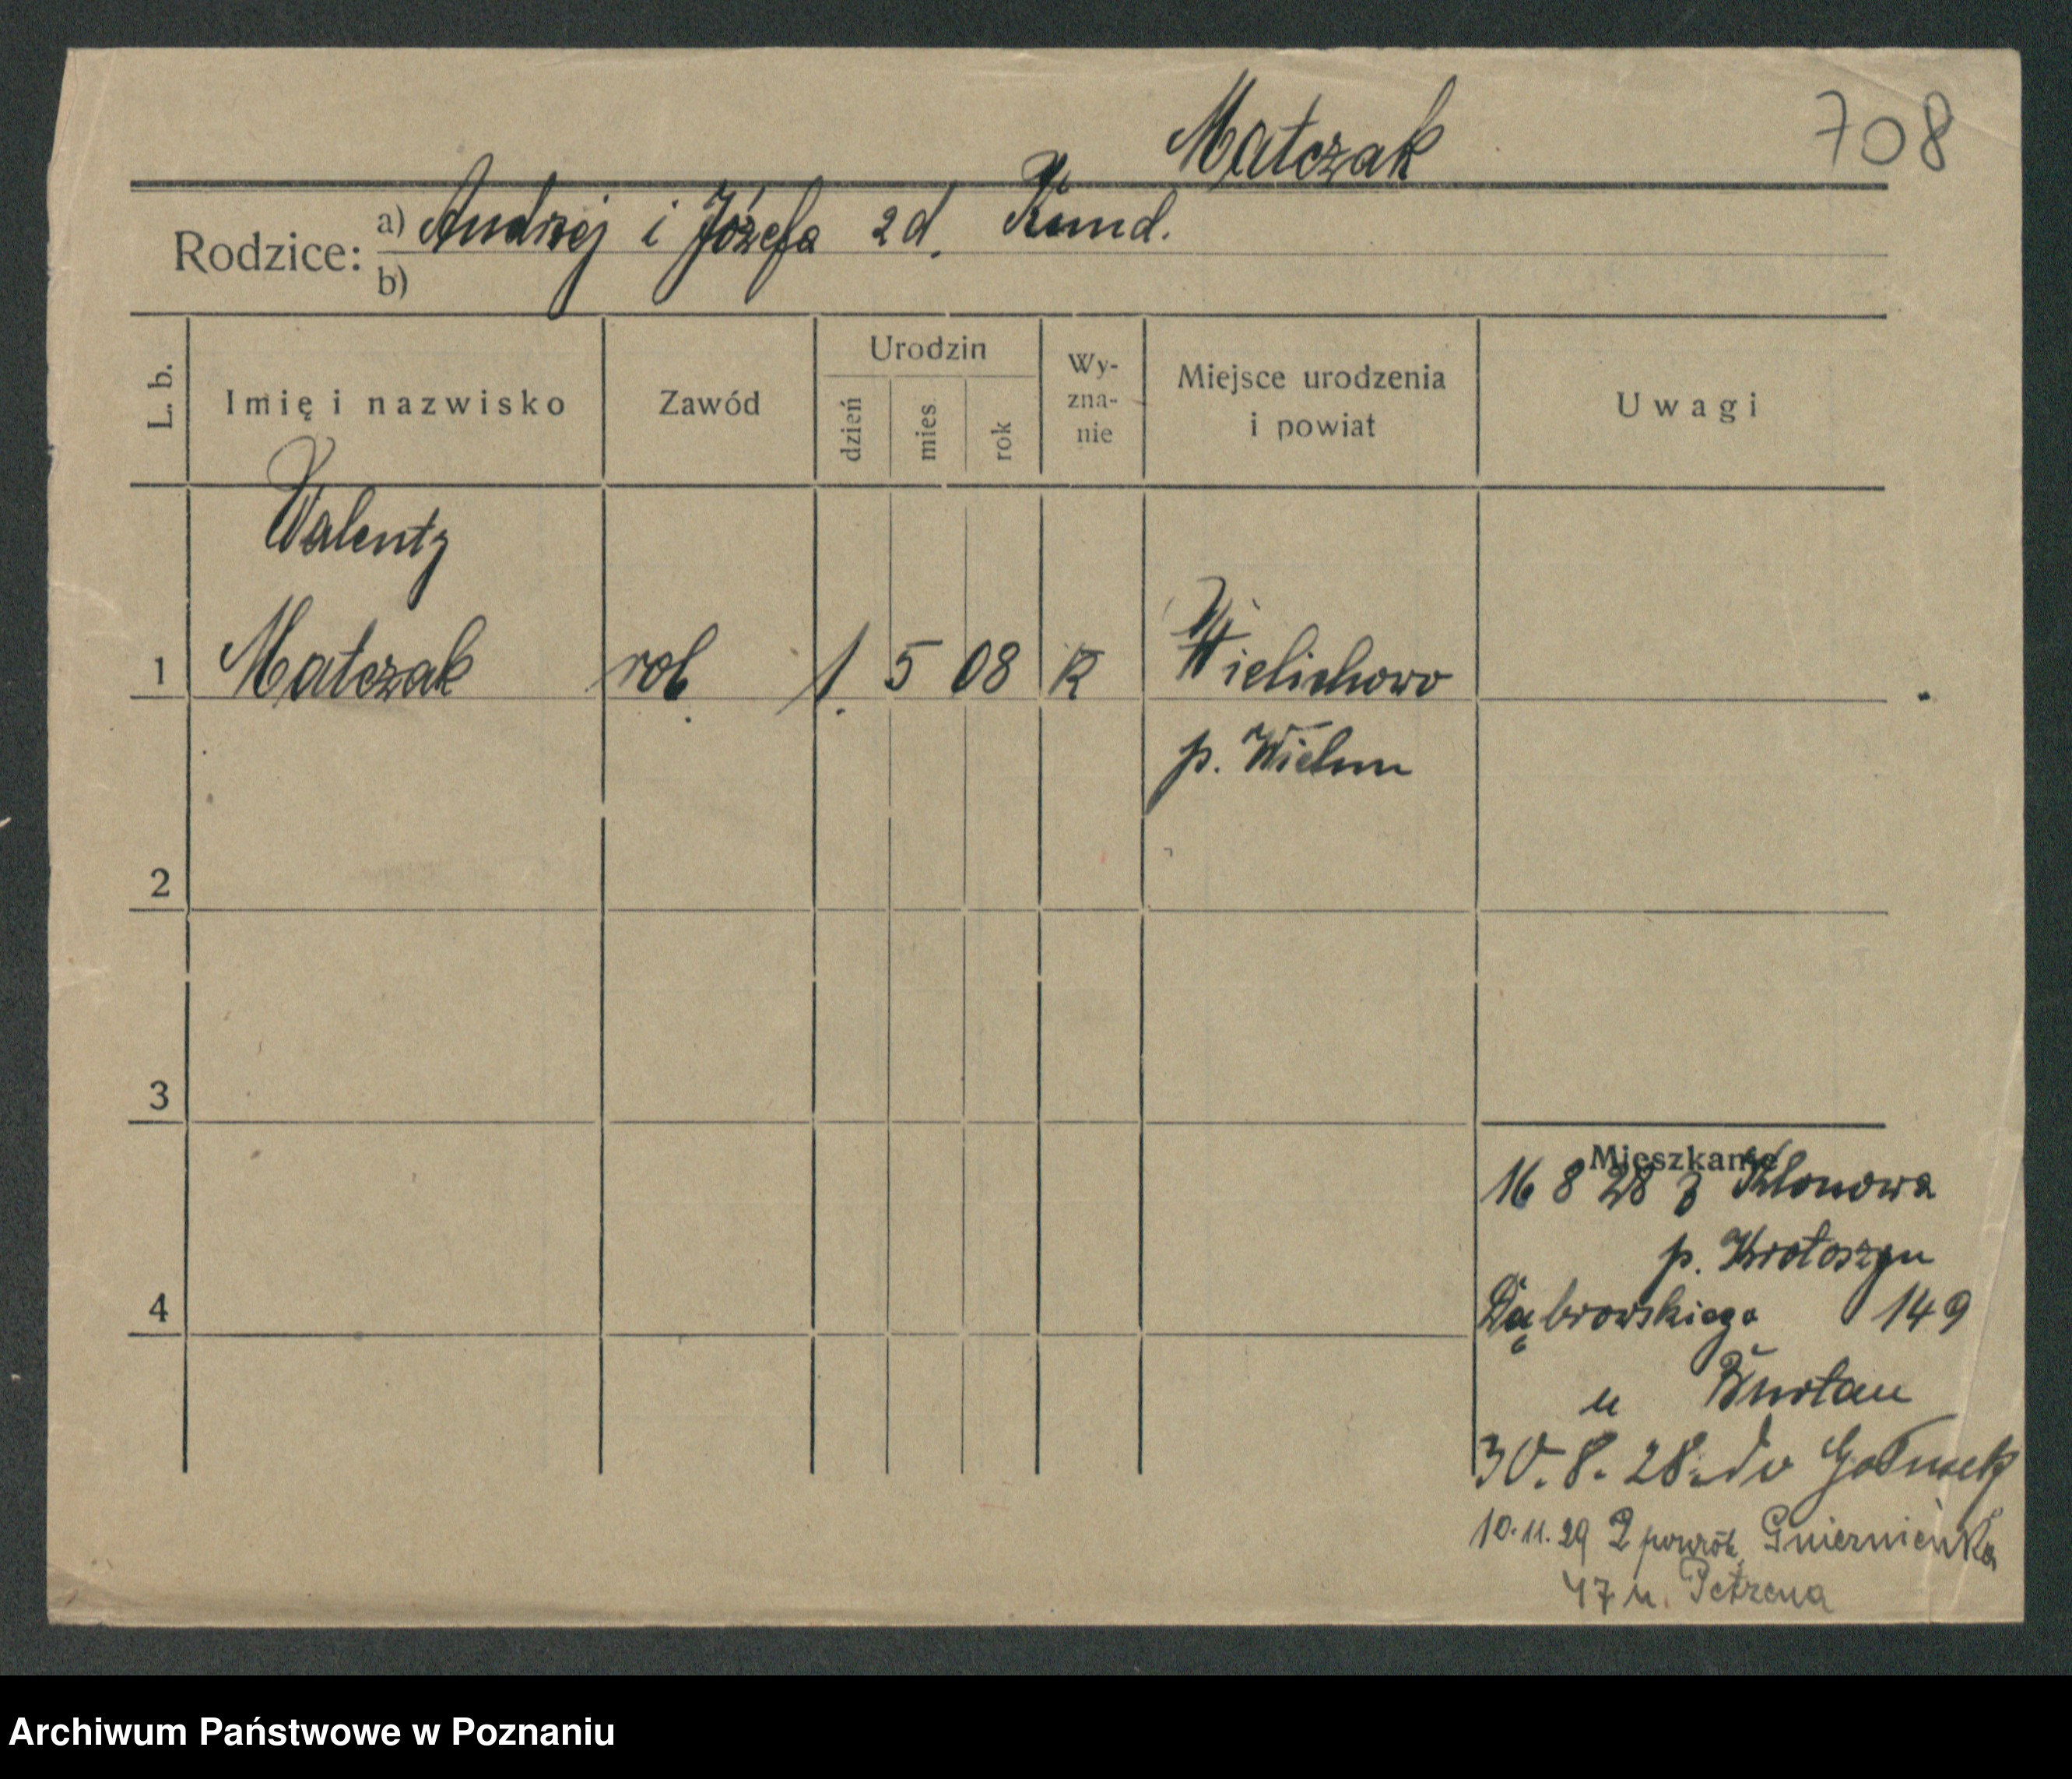 708
Matczak
Rodzice: a) Andrzej i Józefa zd.
b)
L. b.
Imię i nazwisko
Zawód
Urodzin
dzień
mies
rok
Wy-
zna-
nie
Miejsce urodzenia
i powiat
Uwagi
Walenty
1 Matczak rob. 1. 5 08 K Wielichowo
p. Wielun
2
3
4
Mieszkanie
16 8 28 z Klonowa
p. Krotoszyn
Dąbrowskiego 149
u
30. 8. 28. do
10. 11. 29 Z powrót.
47 u.
Archiwum Państwowe w Poznaniu